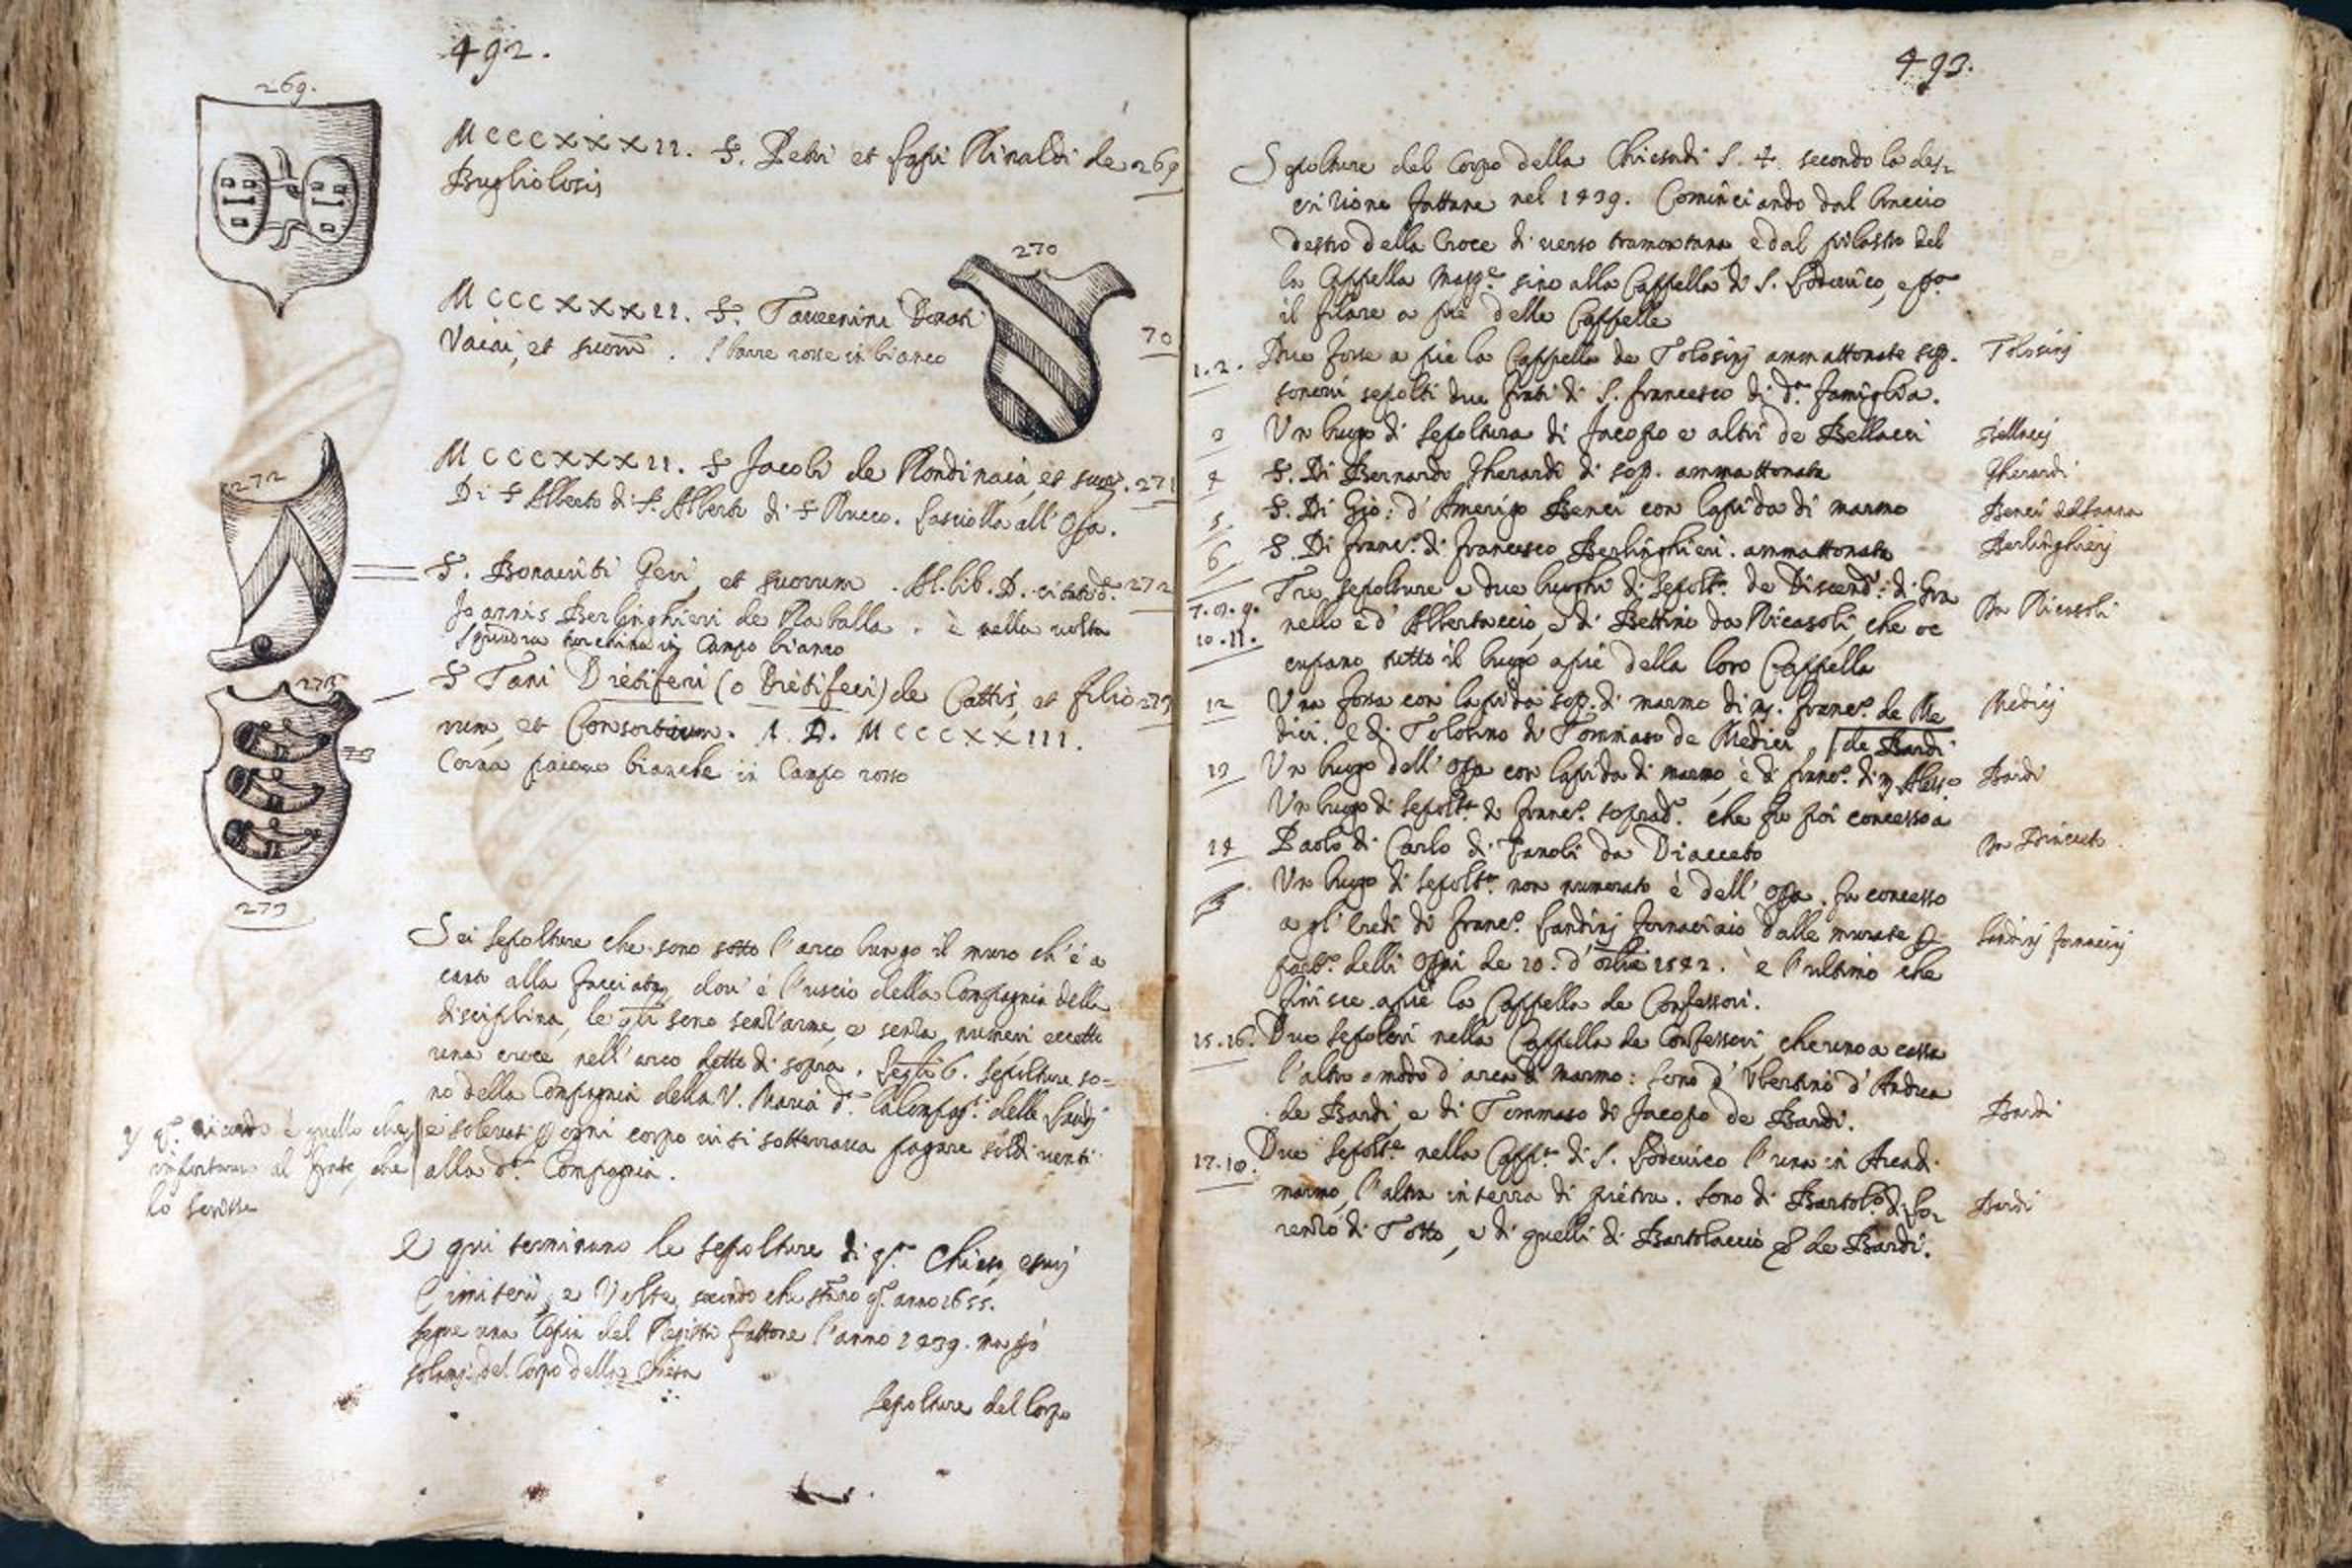 492.
269.
MCCCXXXII. S. Petri et fapi Rinaldi de 269
Bugliolosis
270
MCCCXXXII. S. Tavernini Donati
Vaiai, et suorum. Sbarre rosse in bianco
70
MCCCXXXII. S Jacobi de Rondinaia, et suor. 271
Di S Alberto di S. Alberto di S Rucco. Lasciolla all' Opa.
272
S. Bonacursi Geri, et suorum. Al. lib. D. 272
Joannis Berlinghieri de Raballa. è nella volta
squadra turchina in Campo bianco
S Tani Dietiferi (o Brietifeci) de Cattis, et filio 273
rum, et Consortium. A. D. MCCCXXIII.
Corna bianche in Campo rosso
273
73
273
Sei sepolture che sono sotto l'arco lungo il muro ch'è a
canto alla facciata, dov'è l'uscio della Compagnia della
disciplina, le qli sono senz'arme, e senza numeri eccetto
una croce nell'arco detto di sopra. 6. sepolture so=
no della Compagnia della V. Maria d.a la Compag. delle Laudi
e solevasi ogni corpo vi si sotterrava pagare soldi venti
alla d.a Compagnia.
è quello che
al frate, che
lo scrisse
E qui terminano le sepolture di q.a Chiesa, suoi
Cimiterii, e Volte, secondo che stanno q.o anno 1655.
segue una Copia del Registro fattone l'anno 1439. ma
solam. del Corpo della Chiesa
Sepolture del Corpo
493.
Sepolture del Corpo della Chiesa di S. ✝. secondo la des=
crizione fattane nel 1439. Cominciando dal braccio
destro della Croce di verso tramontana e dal pilastro del
la Cappella Magg.e sino alla Cappella di S. Lodovico, e p.a
il filare a piè delle Cappelle
1. 2. Due fosse a piè la Cappella de Tolosini ammattonate sop. Tolosinj
sonovi sepolti due frati di S. francesco di d.a famiglia.
3 Un luogo di sepoltura di Jacopo e altri de Bellacci Bellaccj
4 S. Di Bernardo Gherardi di sop. ammattonata Gherardi
5. S. Di Gio: d'Amerigo Benci con lapida di marmo Benci
6 S. Di franc.o di francesco Berlinghieri. ammattonata Berlinghierj
7. 8. 9. Tre sepolture e due luoghi di sepolt.a de Discend.i: di Gra
10. 11. nello e d'Albertaccio, e di Bettino da Ricasoli, che oc Da Ricasoli
cupano tutto il luogo apiè della loro Cappella
12 Una fossa con lapida sop. di marmo di m. franc.o de Me Medicj
dici. e di Tolosino di Tommaso de Medici, de Bardi
13 Un luogo dell'Opa con lapida di marmo, è di franc.o di m Alesso Bardi
Un luogo di sepolt.a di franc.o soprad.o che fu poi concesso à
14 Paolo di Carlo di Zanobi da Diacceto Da Diacceto
Un luogo di sepolt.a non numerato è dell'Opa. fu concesso
a gl'Eredi di franc.o Landinj fornaciaio dalle murate p Landinj fornaciaj
part.o delli Opai de 20. d'ottbre 1542. è l'ultimo che
finisce apiè la Cappella de Confessori.
15. 16. Due sepolcri nella Cappella de Confessori che uno a cassa
l'altro a modo d'arca di marmo: sono d'Ubertino d'Andrea
de Bardi, e di Tommaso di Jacopo de Bardi. Bardi
17. 18. Due sepolt.e nella Capp.a di S. Lodovico l'una in Arca di
marmo, l'altra in terra di pietra. sono di Bartol.o di Lo= Bardi
renzo di Totto, e di quelli di Bartolaccio de Bardi.